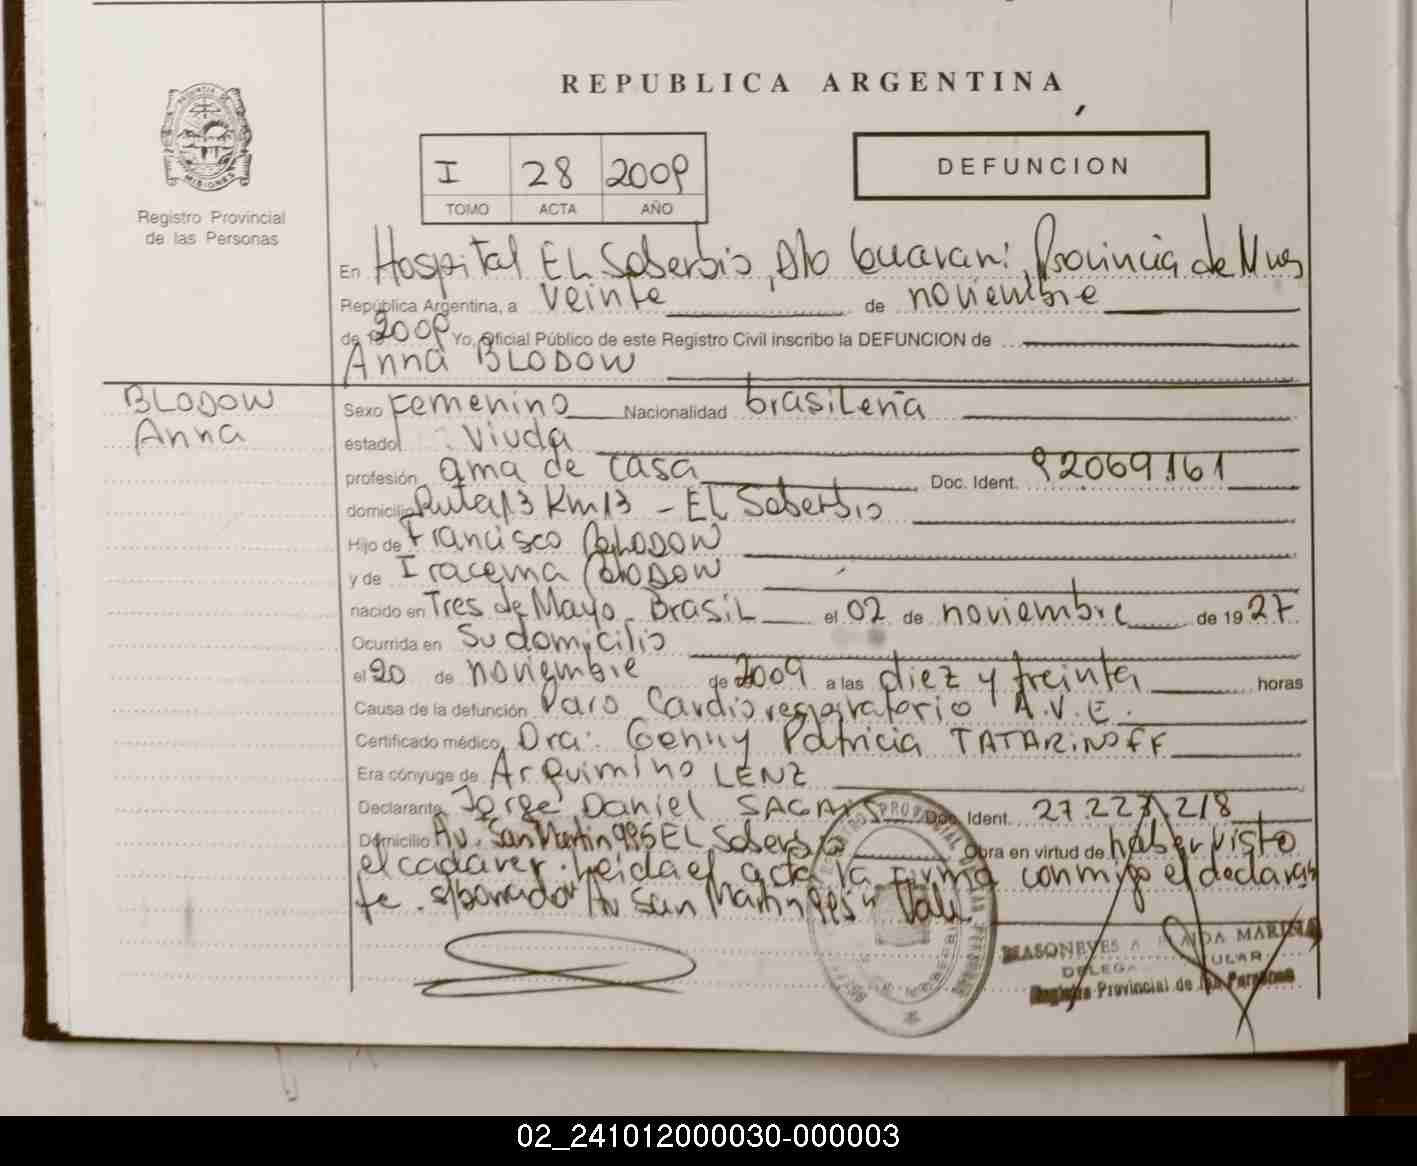 REPUBLICA ARGENTINA
PROVINCIA DE MISIONES
Registro Provincial
de las Personas
I 28 2009
TOMO ACTA AÑO
DEFUNCION
En Hospital EL Soberbio, Dto Guarani, Provincia de Mnes
República Argentina, a veinte de noviembre
de 2009 Yo, Oficial Público de este Registro Civil inscribo la DEFUNCION de
Anna BLODOW
BLODOW
Anna
Sexo femenino Nacionalidad brasileña
estado viuda
profesión ama de casa Doc. Ident. 92069161
domicilio Ruta 13 Km 13 - EL Soberbio
Hijo de Francisco BLODOW
y de Iracema BLODOW
nacido en Tres de Mayo, Brasil el 02 de noviembre de 1927
Ocurrida en Su domicilio
el 20 de noviembre de 2009 a las diez y treinta horas
Causa de la defunción Paro Cardiorespiratorio A.V.E.
Certificado médico, Dra: Genny Patricia TATARINOFF
Era cónyuge de Arquimino LENZ
Declarante Jorge Daniel Doc. Ident. 27.227.218
Domicilio Av. San Martin 995 EL Soberbio Obra en virtud de haber visto
el cadaver. Leida el acta la firma conmigo el declaran
te. s/borrador Av San Martin 995 " Vale.
A. MARINA
DELEGA ULAR
Registro Provincial de las Personas
02_241012000030-000003